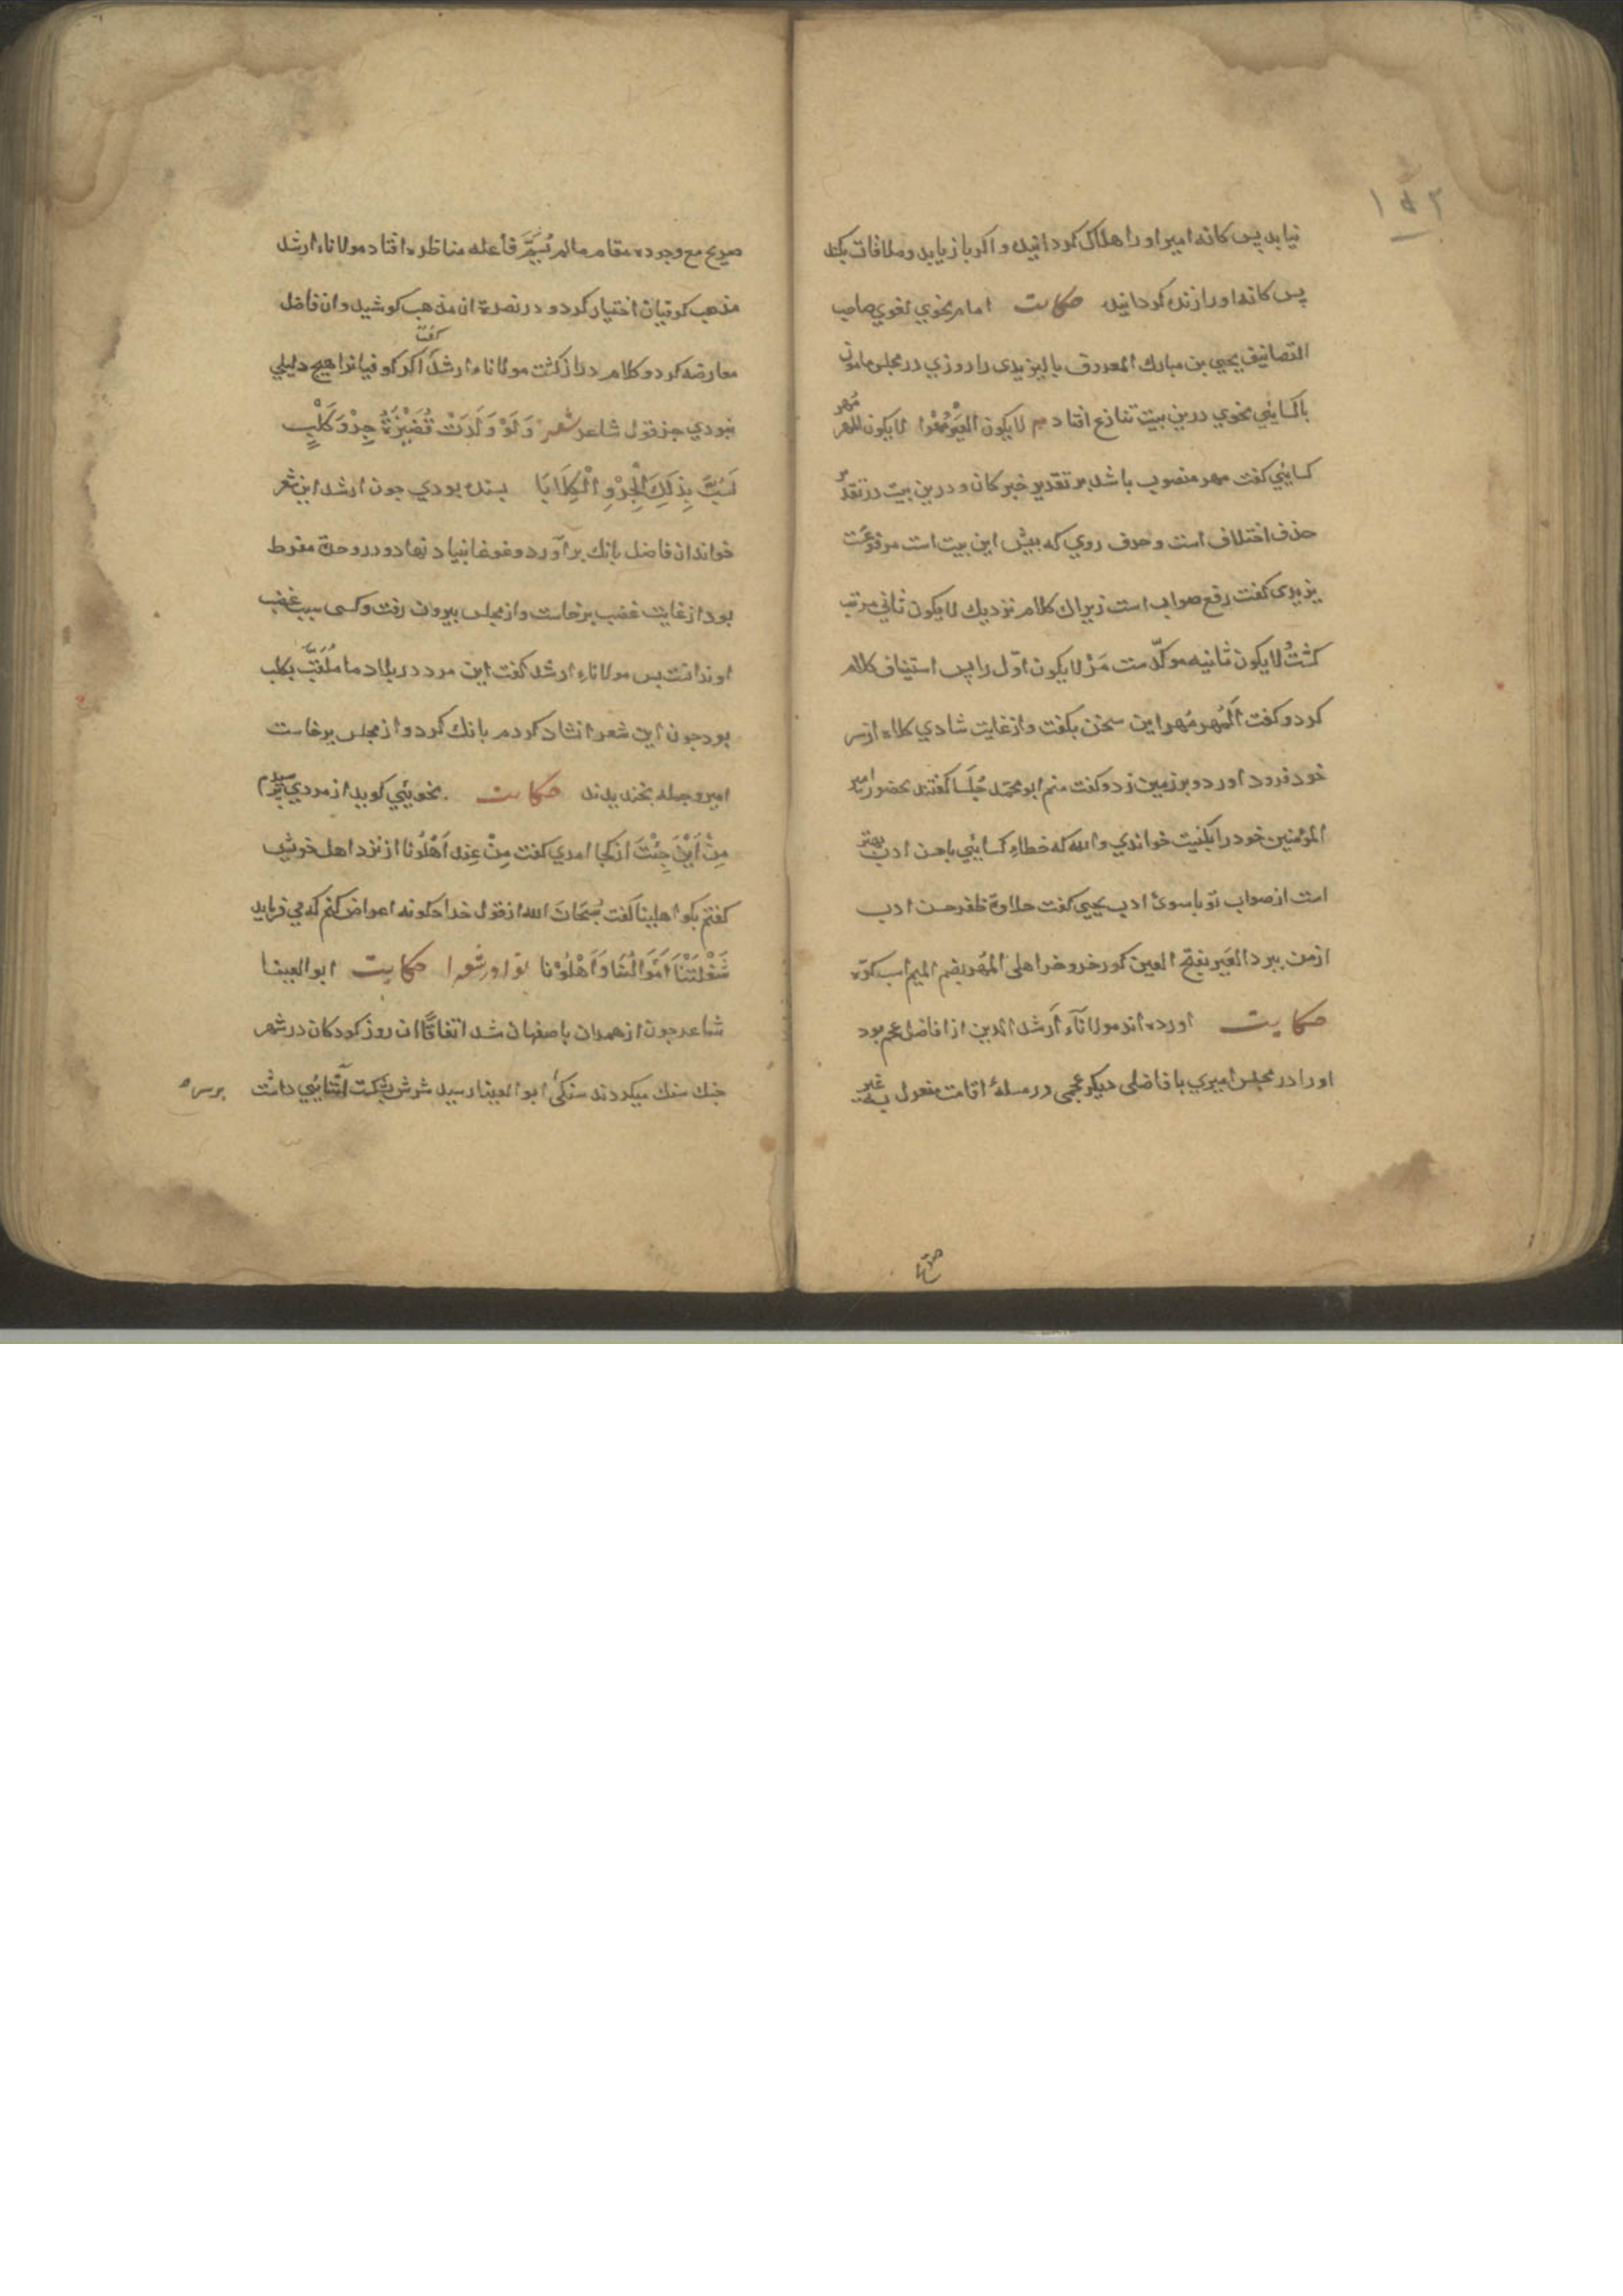 ١٥٢
نیابد پس کانه امیر او را هلاک کردانید و اکر باز یابد و ملاقات بکند
پس کانه او را زنده کردانید حکایت امام نحوي لغوي صاحب
التصانیف یحیی بن مبارك المعروف بالیزیدی را روزي در مجلس مامون
با کسایئي نحوي درین بیت تنازع افتاد لا یکون العیر مهرا لا یکون المهر مهر
کسایئي کفت مهر منصوب باشد بر تقدیر خبر کان و درین بیت در تقدیر
حذف اختلاف است و حرف روي که پیش این بیت است مرفوعست
یزیدی کفت رفع صواب است زیراك کلام نزدیك لا یکون ثاني مرتب
کشت لا یکون ثانیه موکّد ست مر لا یکون اوّل را پس استیناف کلام
کرد و کفت اَلمُهر مُهر این سخن بکفت و از غایت شادي کلاه از سر
خود فرود اورد و بر زمین زد و کفت منم ابو محمّد جُلَسا کفتند بحضور امیر
المؤمنین خود را بکنیت خواندي والله که خطاءِ کسایئي با حسن ادب بهتر
است از صواب تو با سوئ ادب یحیي کفت حلاوة ظفر حسن ادب
از من ببرد العَیر بفتح العین کورخر و خر اهلی المُهر بضم المیم اسب کرّه
حکایت اورده اند مولاناء اَرشد الدین از افاضل عجم بود
او را در مجلس امیري با فاضلی دیکر عجمی در مسلهٔ اقامت مفعول به غیر
صریح مع وجوده مقام ما لم یُسَمَّ فاعله مناظره افتاد مولاناء ارشد
مذهب کوفیان اختیار کرد و در نصرة ان مذهب کوشید و ان فاضل
معارضه کرد و کلام دراز کشت مولاناء ارشد کفت اکر کوفیانرا هیچ دلیلي
نبودي جز قول شاعر شعر وَلَوْ وَلَدَتْ قُفَیْرَةُ جِرْوَ کَلْبٍ
لَسُبَّ بِذَلِكَ الْجِرْوِ الْکِلَابَا بسنده بودي چون ارشد این شعر
خواند ان فاضل بانك برآورد و غوغا بنیاد نهاد و درو حدة مفرط
بود از غایت غضب برخاست و از مجلس بیرون رفت و کسی سبب غضب
او ندانست پس مولاناءِ ارشد کفت این مرد در بلاد ما مُلَقَّب بکلب
بود چون این شعر انشاد کردم بانك کرد و از مجلس برخاست
امیر و جمله بخندیدند حکایت نحویئي کوید از مردي پرسیدم
مِنْ اَیْنَ جِئْتَ از کجا امدي کفت مِنْ عِند اَهْلُونا از نزد اهل خویش
کفتم بکو اهلینا کفت سُبْحَانَ الله از قول خدا چکونه اعراض کنم که می فرماید
شَغَلَتْنَا اَمْوَالُنَا وَاَهْلُوْنا حکایت ابو العینا
شاعر چون از همدان باصفهان شد اتفاقًا ان روز کودکان در شهر
جنك سنك میکردند سنکی ابو العینا رسید سرش بشکست آشنایئي داشت
برسره